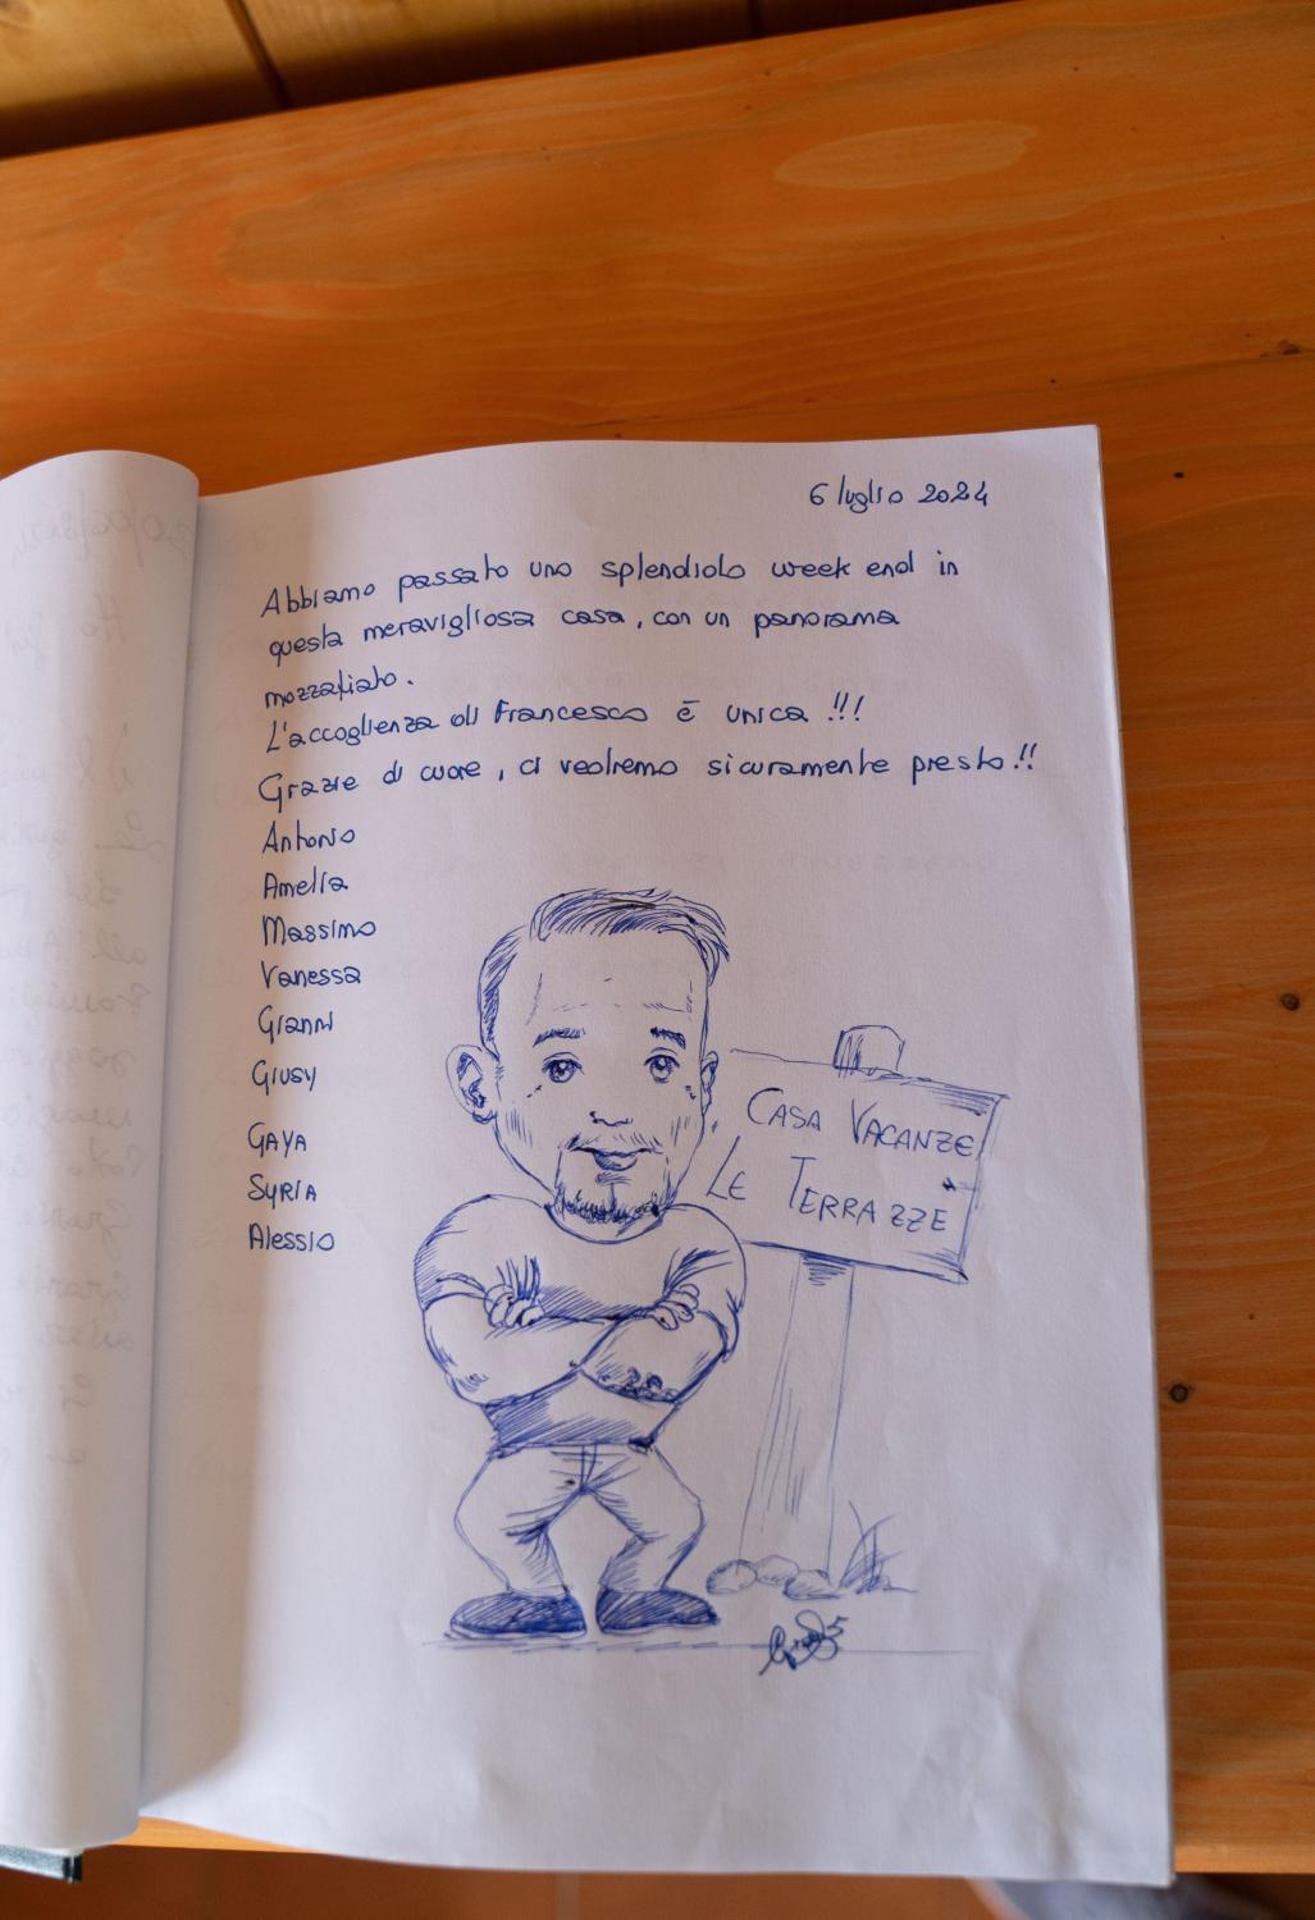 6 luglio 2024
Abbiamo passato uno splendido week end in
questa meravigliosa casa, con un panorama
mozzafiato.
L'accoglienza di Francesco è unica !!!
Grazie di cuore, ci vedremo sicuramente presto!!
Antonio
Amelia
Massimo
Vanessa
Gianni
Giusy
GAYA
SYRIA
Alessio
CASA VACANZE
LE TERRAZZE